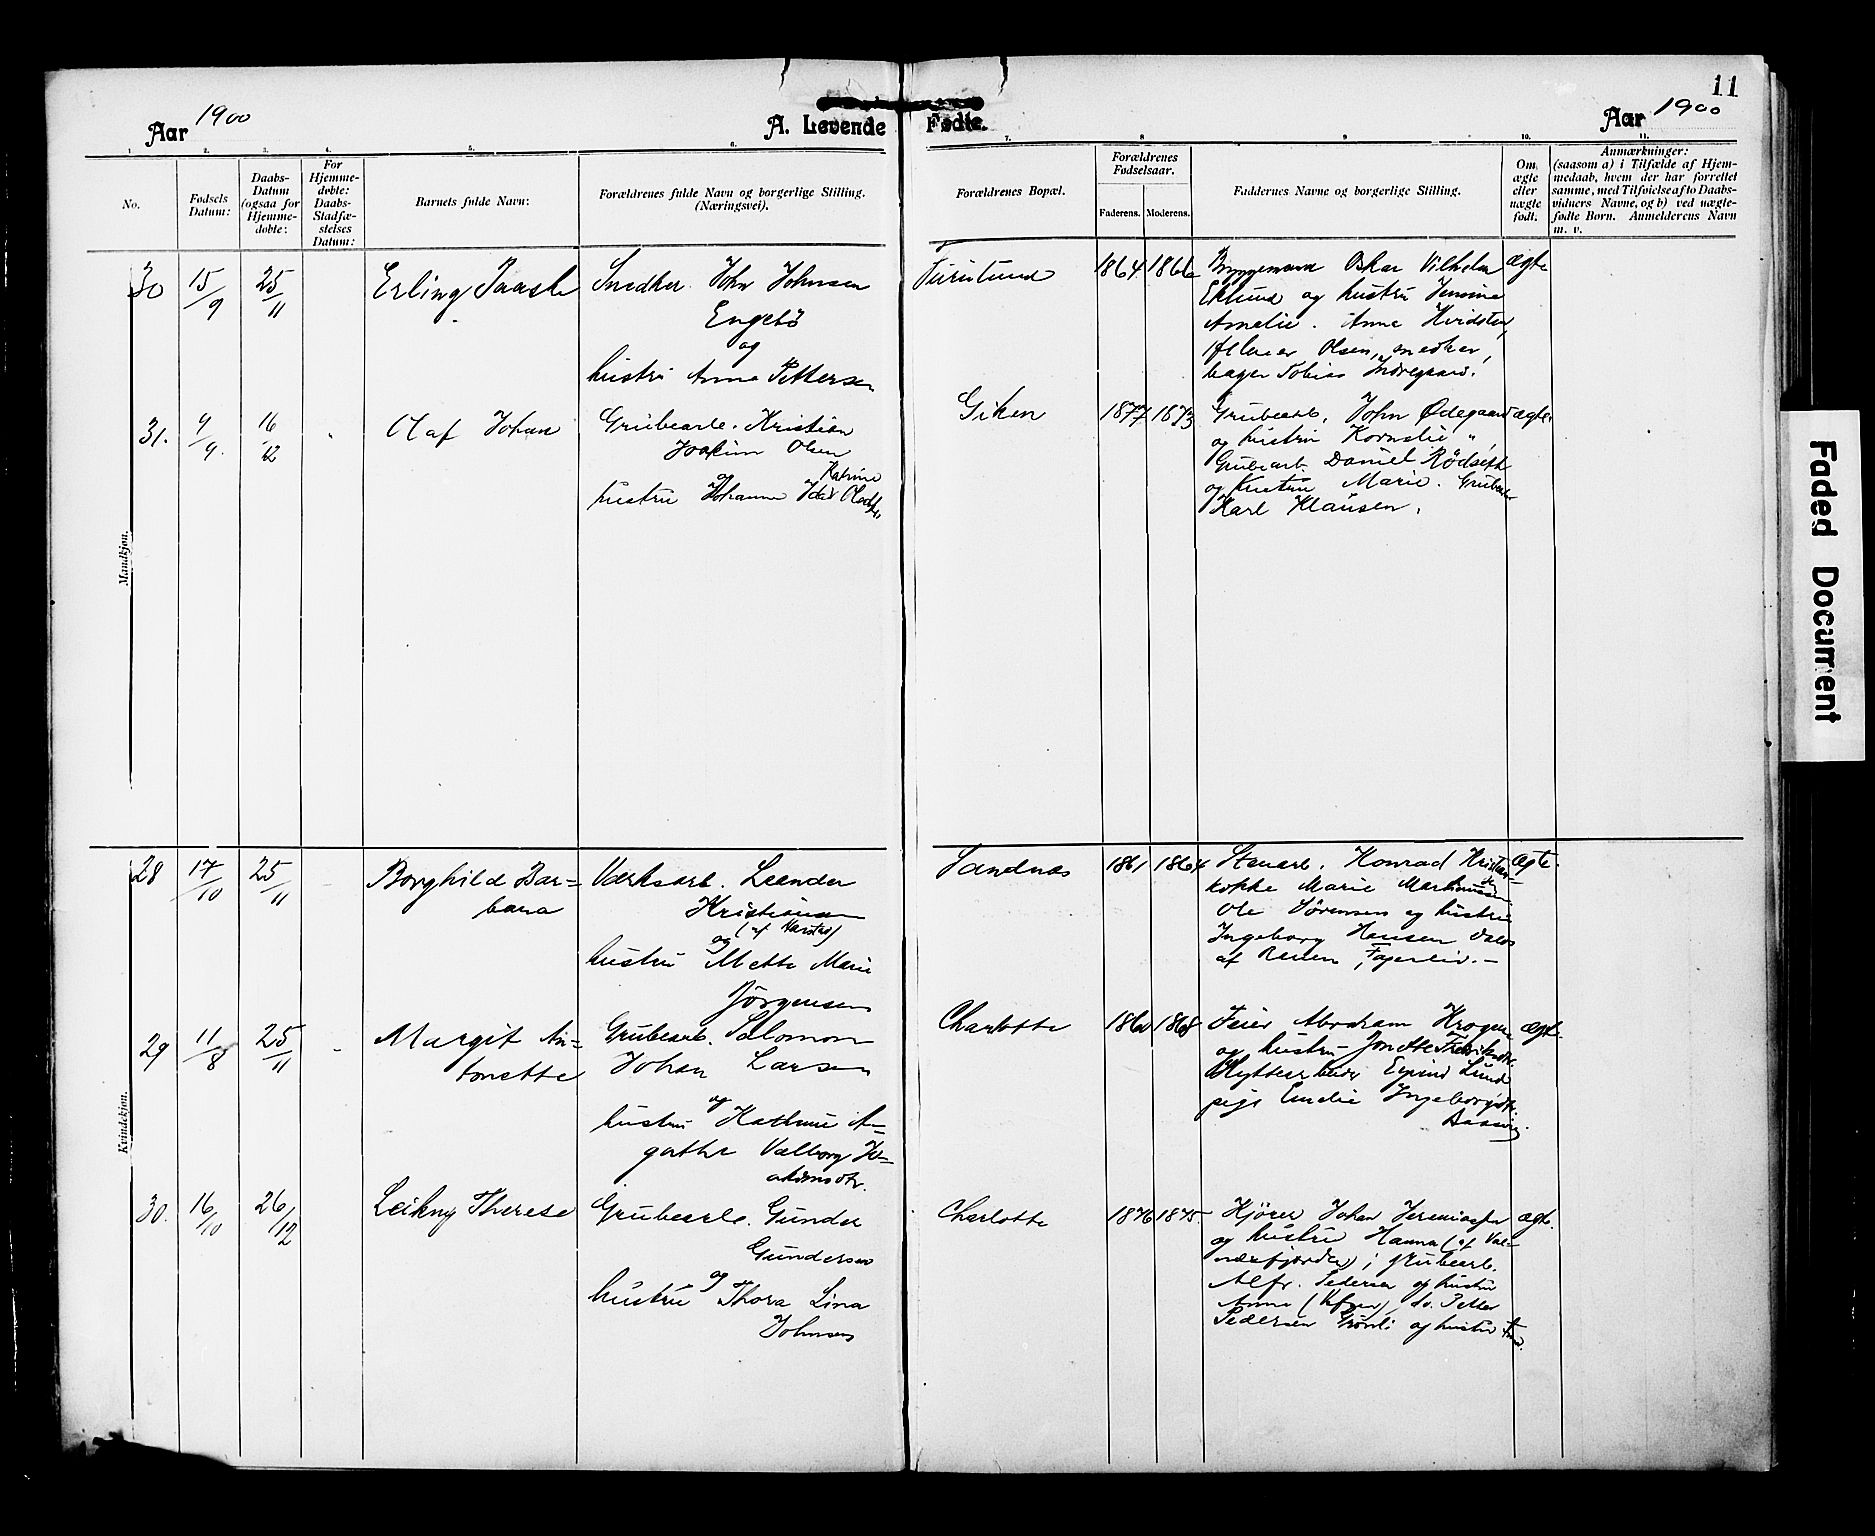 11
Aar 1900
A. Levende Fødte.
Aar 1900
1. 2. 3. 4. 5. 6. 7. 8. 9. 10. 11.
No.
Fødsels Datum:
Daabs-
Datum
(ogsaa for
Hjemme-
døbte:
For
Hjemme-
døbte:
Daabs-
Stadfæ-
stelses
Datum:
Barnets fulde Navn:
Forældrenes fulde Navn og borgerlige Stilling.
(Næringsvei).
Forældrenes Bopæl.
Forældrenes
Fødselsaar.
Faderens. Moderens.
Faddernes Navne og borgerlige Stilling.
Om
ægte
eller
uægte
født.
Anmærkninger:
(saasom a) i Tilfælde af Hjem-
medaab, hvem der har forrettet
samme, med Tilføielse af to Daabs-
vidners Navne, og b) ved uægte-
fødte Børn. Anmelderens Navn
m. v.
Mandkjøn.
30 15/9 25/11 Erling Paaske
Snedker John Johnsen
Engelö
og
hustru Anna Pettersen
Furulund 1864 1866
Bryggemand Oskar Vilhelm
Eklund og hustru Jensine
Amalie. Anna Hvidsten,
Olsen, snedker,
bager Tobias Indregaard.
ægte
31. 9/9 16/12 Olaf Johan
Grubearb. Kristian
Joakim Olsen
og
hustru Johanna Ida Katrine
Giken 1877 1873
Grubearb. John Ødegaard
og hustru Kornelie " ,
Grubearb. Daniel Rødseth
og hustru Marie. Grubearb.
Karl Klausen.
ægte
Kvindekjøn.
28 17/10 25/11 Borghild Bar=
bara
Værksarb. Leander
Kristiansen
(af Harstad)
og
hustru Mette Marie
Jørgensen
Sandnæs 1861 1864
Stenarb. Konrad Kristian-
sen
kokke Marie
Ole Sørensen og hustru
Ingeborg Hansen
af , Fagerli. -
ægte.
29 11/8 25/11 Margit An=
tonette
Grubearb. Salomon
Johan Larsen
og
hustru Kathrine A=
gathe Valborg Jo=
akimsdtr.
Charlotte 1860 1868
Feier Abraham Krogen
og hustru Jonette Fredriksdtr.
Hyttearbeider Eyvind Lund
pige Emelie Ingeborgdtr.
ægt.
30. 16/10 26/12 Leikny Therese
Grubearb. Gunder
Gundersen
og
hustru Thora Lina
Johnsen
Charlotte 1876 1875.
Kjører Johan Jeremiasen
og hustru Hanna (af Val=
næsfjorden); grubearb.
Alfr. Pedersen og hustru
Anna , do. Petter
Pedersen Grönli og hustru
ægt.
Faded Document